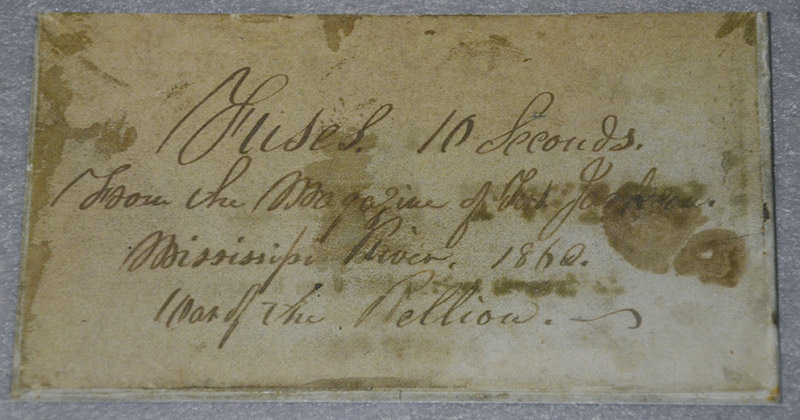 Fuses. 10 Seconds.
From the Magazine of Fort Jackson.
Mississippi River. 1862.
War of the Rellion.